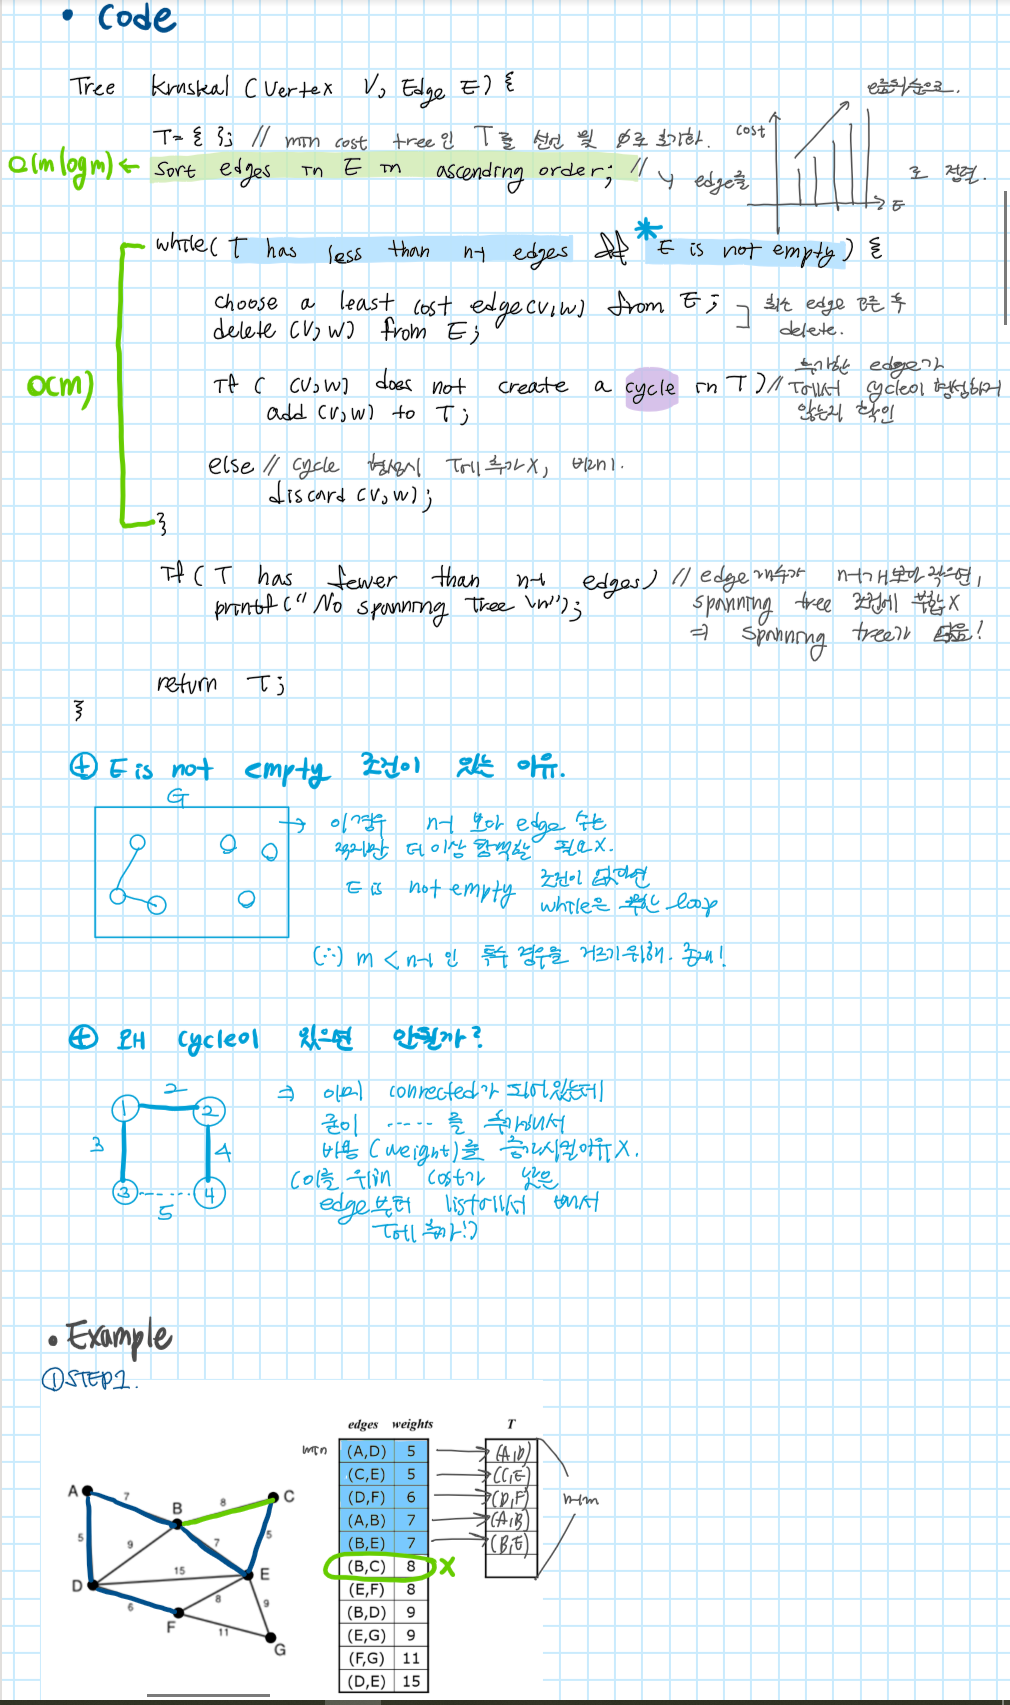 • Code
Tree Kruskal (Vertex V, Edge E) {
T = { }; // min cost tree인 T를 선언 및 ∅로 초기화.
O(m log m) ← Sort edges in E in ascending order; // ↳ edge를
cost
E
로 정렬.
while( T has less than n-1 edges && * E is not empty) {
choose a least cost edge(v,w) from E;
delete (v,w) from E;
최소 edge 고른 후
delete.
O(m)
if ( (v,w) does not create a cycle in T) // 추가한 edge가
T에서 cycle이 형성하지
않는지 확인
add (v,w) to T;
else // cycle 형성시 T에 추가X, 버리기.
discard (v,w);
}
if ( T has fewer than n-1 edges) // edge 개수가 n-1개보다 작으면,
printf (" No spanning Tree \n"); spanning tree 조건에 부합X
⇒ spanning tree가 없음!
return T;
}
⊕ E is not empty 조건이 있는 이유.
G
→ 이경우 n-1 보다 edge 수는
적지만 더이상 탐색할 필요X.
E is not empty 조건이 없다면
while은 무한 loop
(∴) m < n-1 인 특수 경우를 거르기위해. 존재!
⊕ 왜 cycle이 있으면 안될까?
1 2 2
3 4
3 4
5
⇒ 이미 connected가 되어있는데
굳이 ----- 를 추가해서
비용 (weight)를 증가시킬이유X.
(이를 위해 cost가 낮은
edge부터 list에서 빼서
T에 추가!)
• Example
① STEP1.
edges weights T
min (A,D) 5 → (A,D)
(C,E) 5 → (C,E)
(D,F) 6 → (D,F)
(A,B) 7 → (A,B)
(B,E) 7 → (B,E)
(B,C) 8 X
(E,F) 8
(B,D) 9
(E,G) 9
(F,G) 11
(D,E) 15
A 7 B 8 C
5 9 7 5
D 15 E
6 8 9
F 11 G